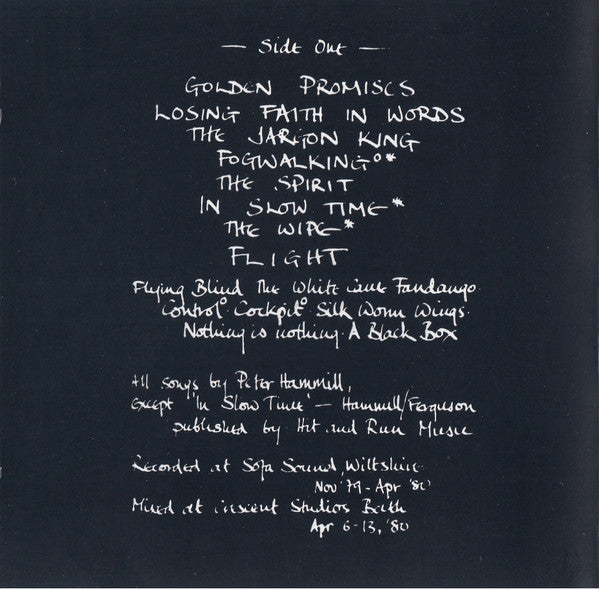 — Side Out —
GOLDEN PROMISES
LOSING FAITH IN WORDS
THE JARGON KING
FOGWALKING°*
THE SPIRIT
IN SLOW TIME*
THE WIPE*
FLIGHT
Flying Blind The White Cane Fandango
Control° Cockpit° Silk Worm Wings.
Nothing is nothing. A Black Box
All songs by Peter Hammill,
except 'In Slow Time' — Hammill/Ferguson
published by Hit and Run Music
Recorded at Sofa Sound, Wiltshire
Nov '79 - Apr '80
Mixed at Crescent Studios Bath
Apr 6-13, '80